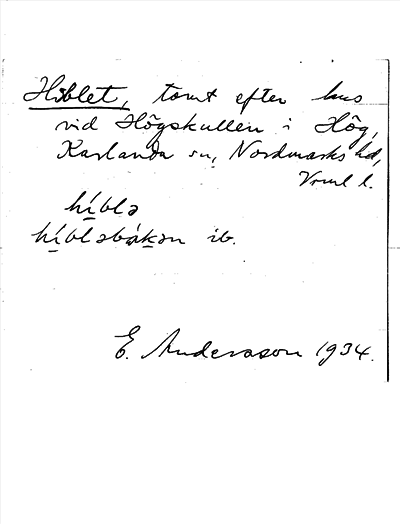 Hiblet, tomt efter hus
vid Högskullen i Hög,
Karlanda sn, Nordmarks hd,
Vrml l.
hí̱blə
hí̱bləbàḵən ib.
E. Andersson 1934.